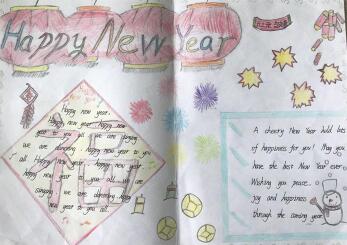 Happy New Year
Happy new year.
Happy new year happy new
year to you all we are singing
we are dancing happy new year to you
all Happy New Year happy new year
happy new year you all we are
singing we are dancing happy
new year to you all.
A cheery New Year hold lots
of happiness for you! May you
have the best New Year ever.
Wishing you peace.
joy and happiness
through the coming year